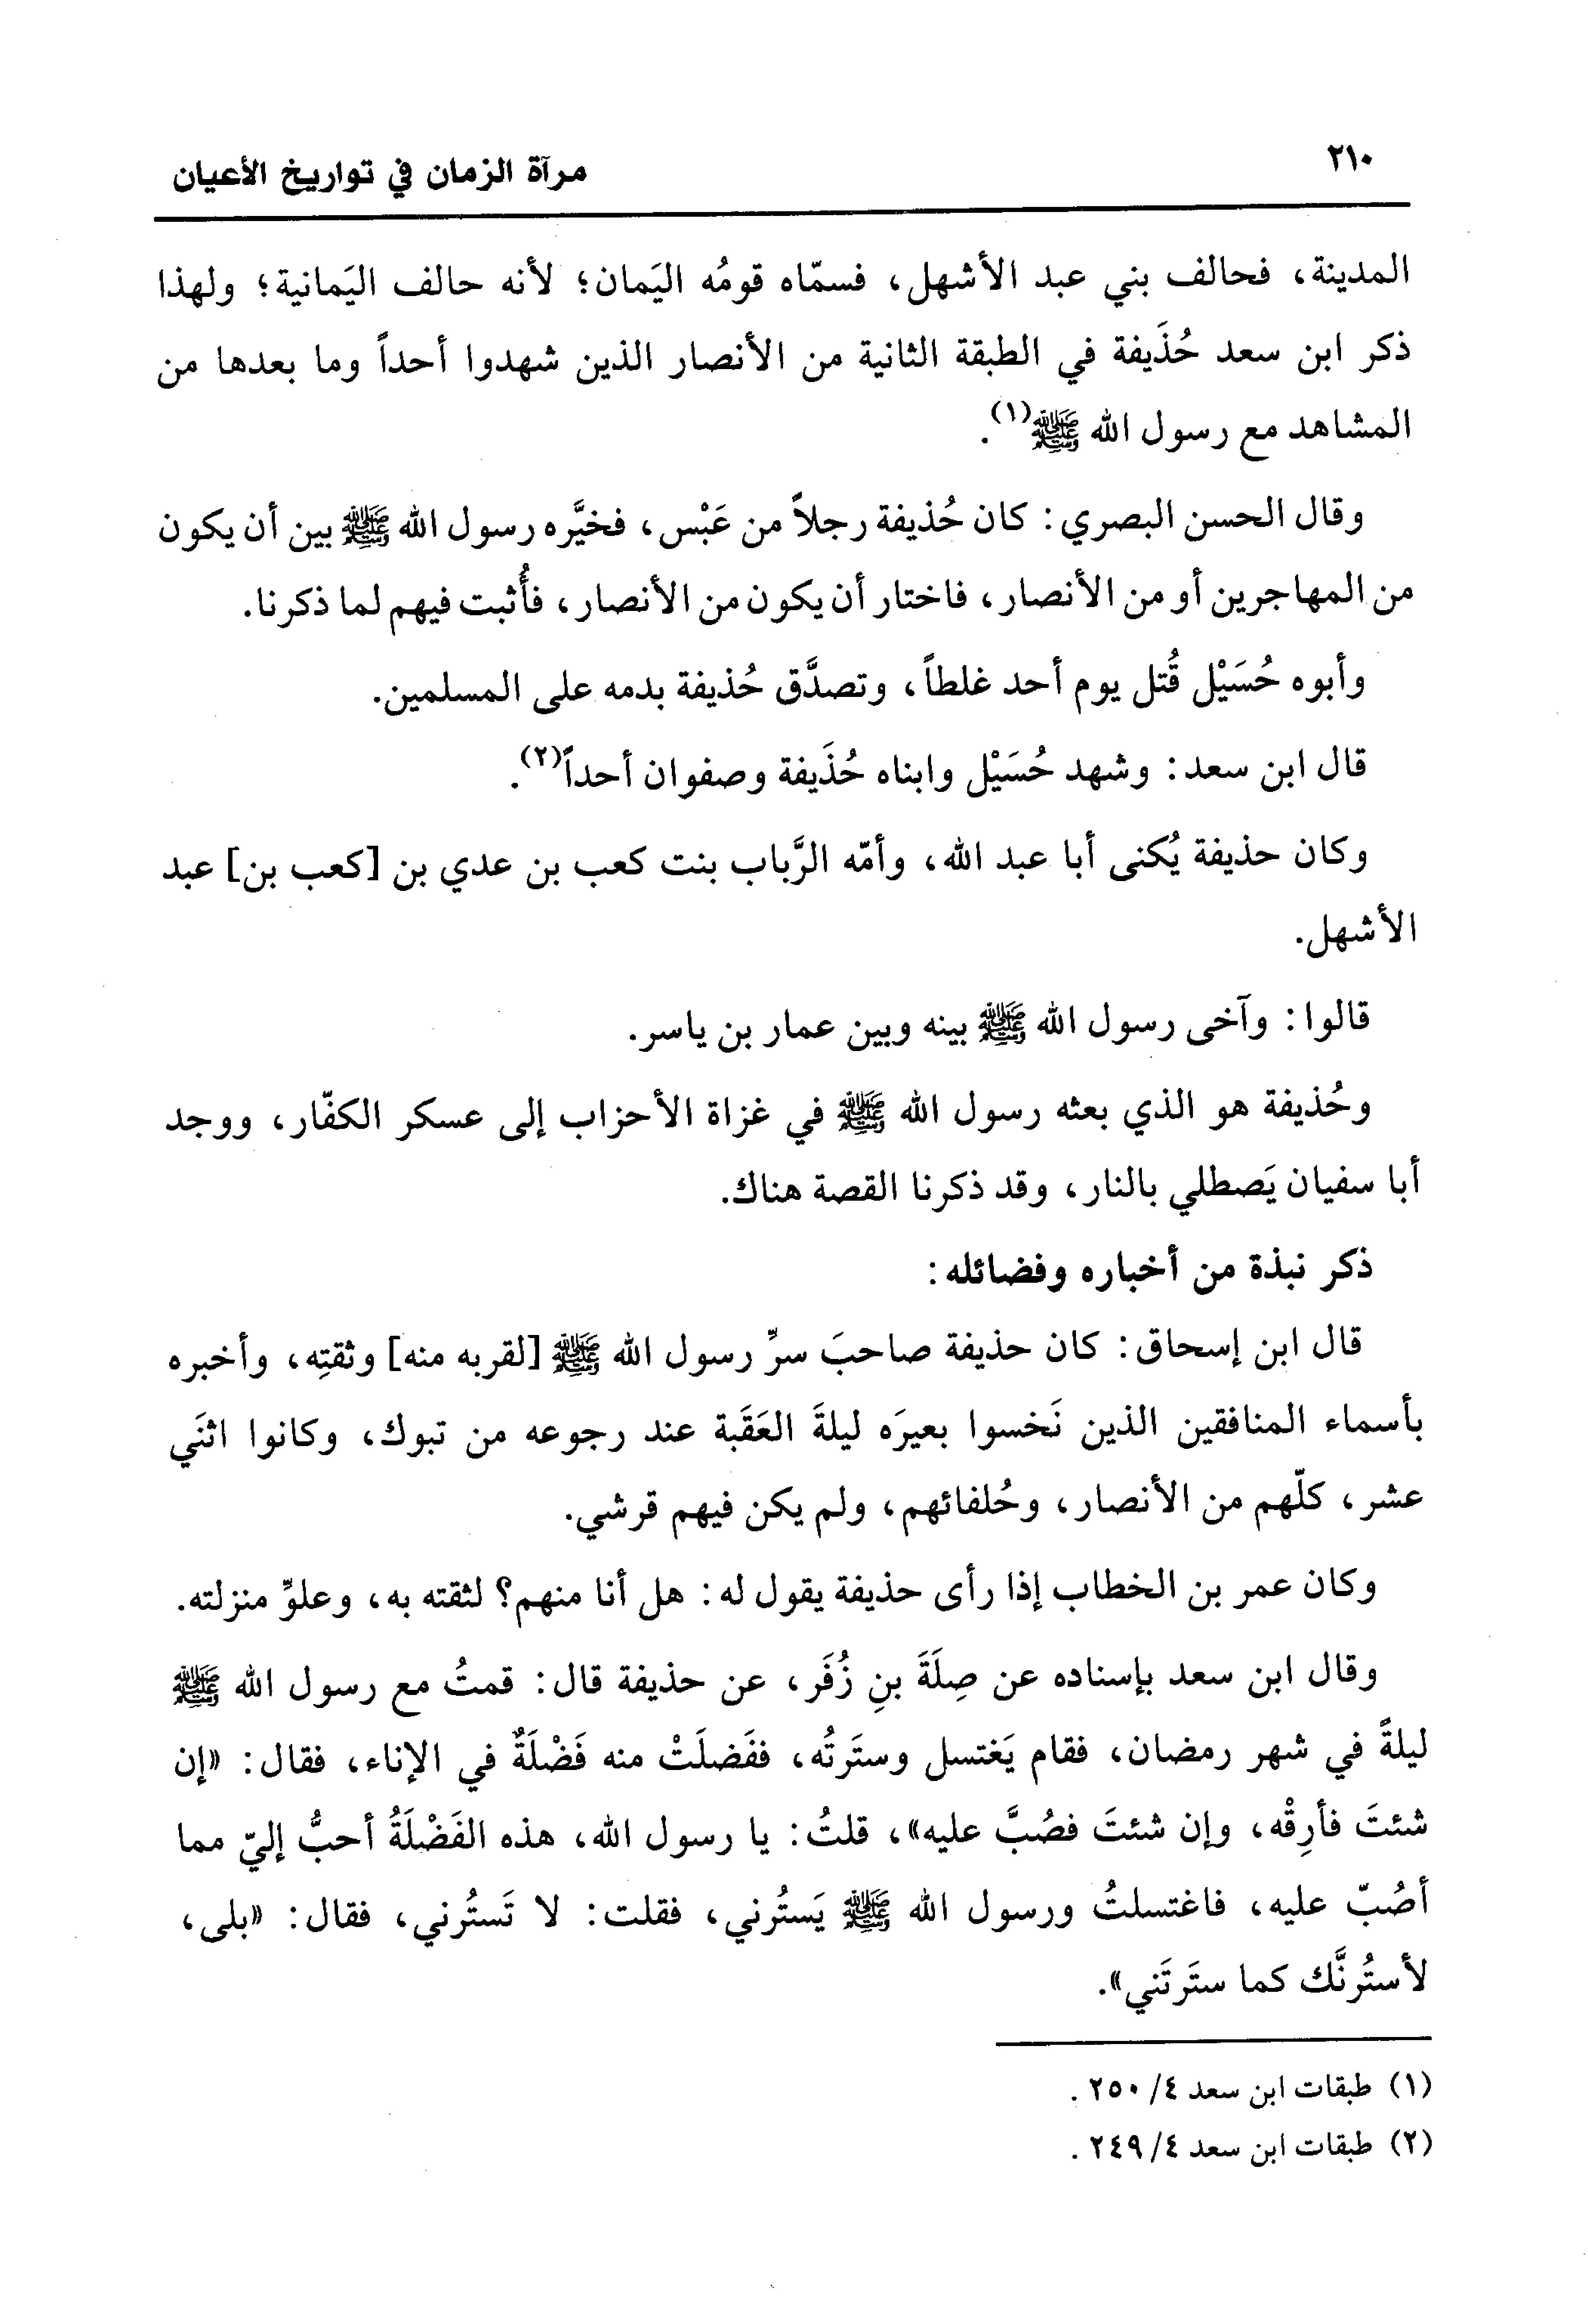 ٢١٠
مرآة الزمان في تواريخ الأعيان
المدينة، فحالف بني عبد الأشهل، فسمّاه قومُه اليَمان؛ لأنه حالف اليَمانية؛ ولهذا
ذكر ابن سعد حُذَيفة في الطبقة الثانية من الأنصار الذين شهدوا أحداً وما بعدها من
المشاهد مع رسول الله ﷺ(١).
وقال الحسن البصري: كان حُذيفة رجلاً من عَبْس، فخيَّره رسول الله ﷺ بين أن يكون
من المهاجرين أو من الأنصار، فاختار أن يكون من الأنصار، فأُثبت فيهم لما ذكرنا.
وأبوه حُسَيْل قُتل يوم أحد غلطاً، وتصدَّق حُذيفة بدمه على المسلمين.
قال ابن سعد: وشهد حُسَيْل وابناه حُذَيفة وصفوان أحداً(٢).
وكان حذيفة يُكنى أبا عبد الله، وأمّه الرَّباب بنت كعب بن عدي بن [كعب بن] عبد
الأشهل.
قالوا: وآخى رسول الله ﷺ بينه وبين عمار بن ياسر.
وحُذيفة هو الذي بعثه رسول الله ﷺ في غزاة الأحزاب إلى عسكر الكفّار، ووجد
أبا سفيان يَصطلي بالنار، وقد ذكرنا القصة هناك.
ذكر نبذة من أخباره وفضائله:
قال ابن إسحاق: كان حذيفة صاحبَ سرِّ رسول الله ﷺ [لقربه منه] وثقتِه، وأخبره
بأسماء المنافقين الذين نَخسوا بعيرَه ليلةَ العَقَبة عند رجوعه من تبوك، وكانوا اثنَي
عشر، كلّهم من الأنصار، وحُلفائهم، ولم يكن فيهم قرشي.
وكان عمر بن الخطاب إذا رأى حذيفة يقول له: هل أنا منهم؟ لثقته به، وعلوِّ منزلته.
وقال ابن سعد بإسناده عن صِلَةَ بنِ زُفَر، عن حذيفة قال: قمتُ مع رسول الله ﷺ
ليلةً في شهر رمضان، فقام يَغتسل وستَرتُه، ففَضلَتْ منه فَضْلَةٌ في الإناء، فقال: «إن
شئتَ فأرِقْه، وإن شئتَ فصُبَّ عليه»، قلتُ: يا رسول الله، هذه الفَضْلَةُ أحبُّ إليّ مما
أصُبّ عليه، فاغتسلتُ ورسول الله ﷺ يَستُرني، فقلت: لا تَستُرني، فقال: «بلى،
لأستُرنَّك كما ستَرتَني».
(١) طبقات ابن سعد ٤/ ٢٥٠.
(٢) طبقات ابن سعد ٤/ ٢٤٩.